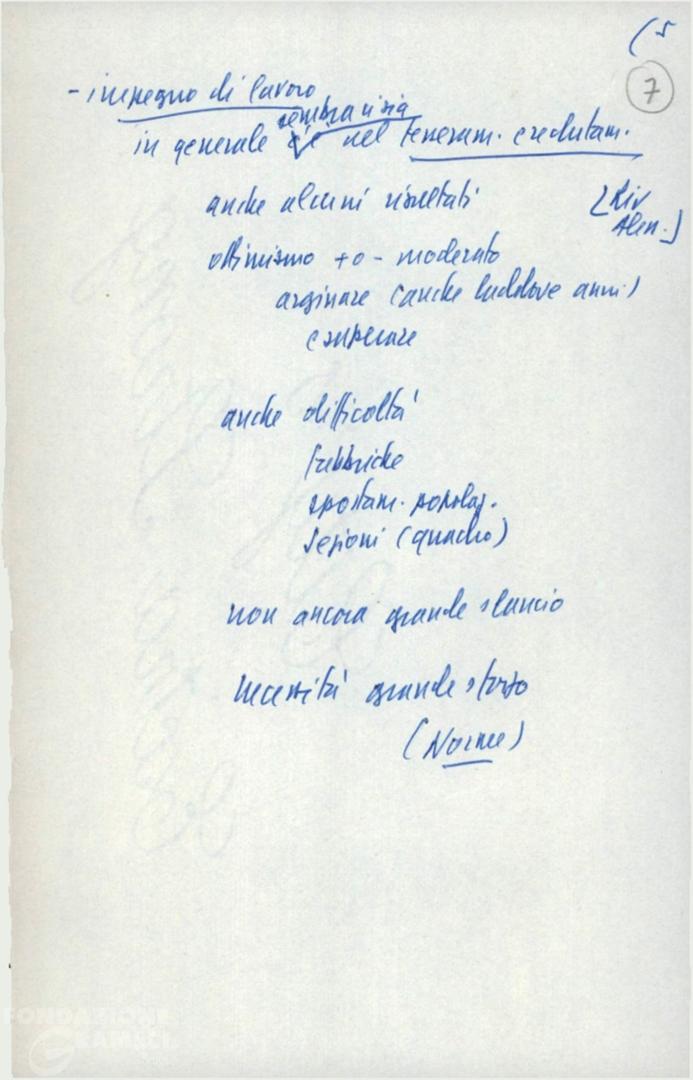 (5
7
- impegno di lavoro
sembra vi sia
in generale c'è nel tesseram. reclutam.
anche alcuni risultati [Riv
Alen.]
ottimismo + o - moderato
arginare (anche laddove aum.)
recuperare
anche difficoltà
fabbriche
spostam. popolaz.
Sezioni (quadro)
non ancora grande slancio
necessità grande sforzo
(Norme)
FONDAZIONE
GRAMSCI